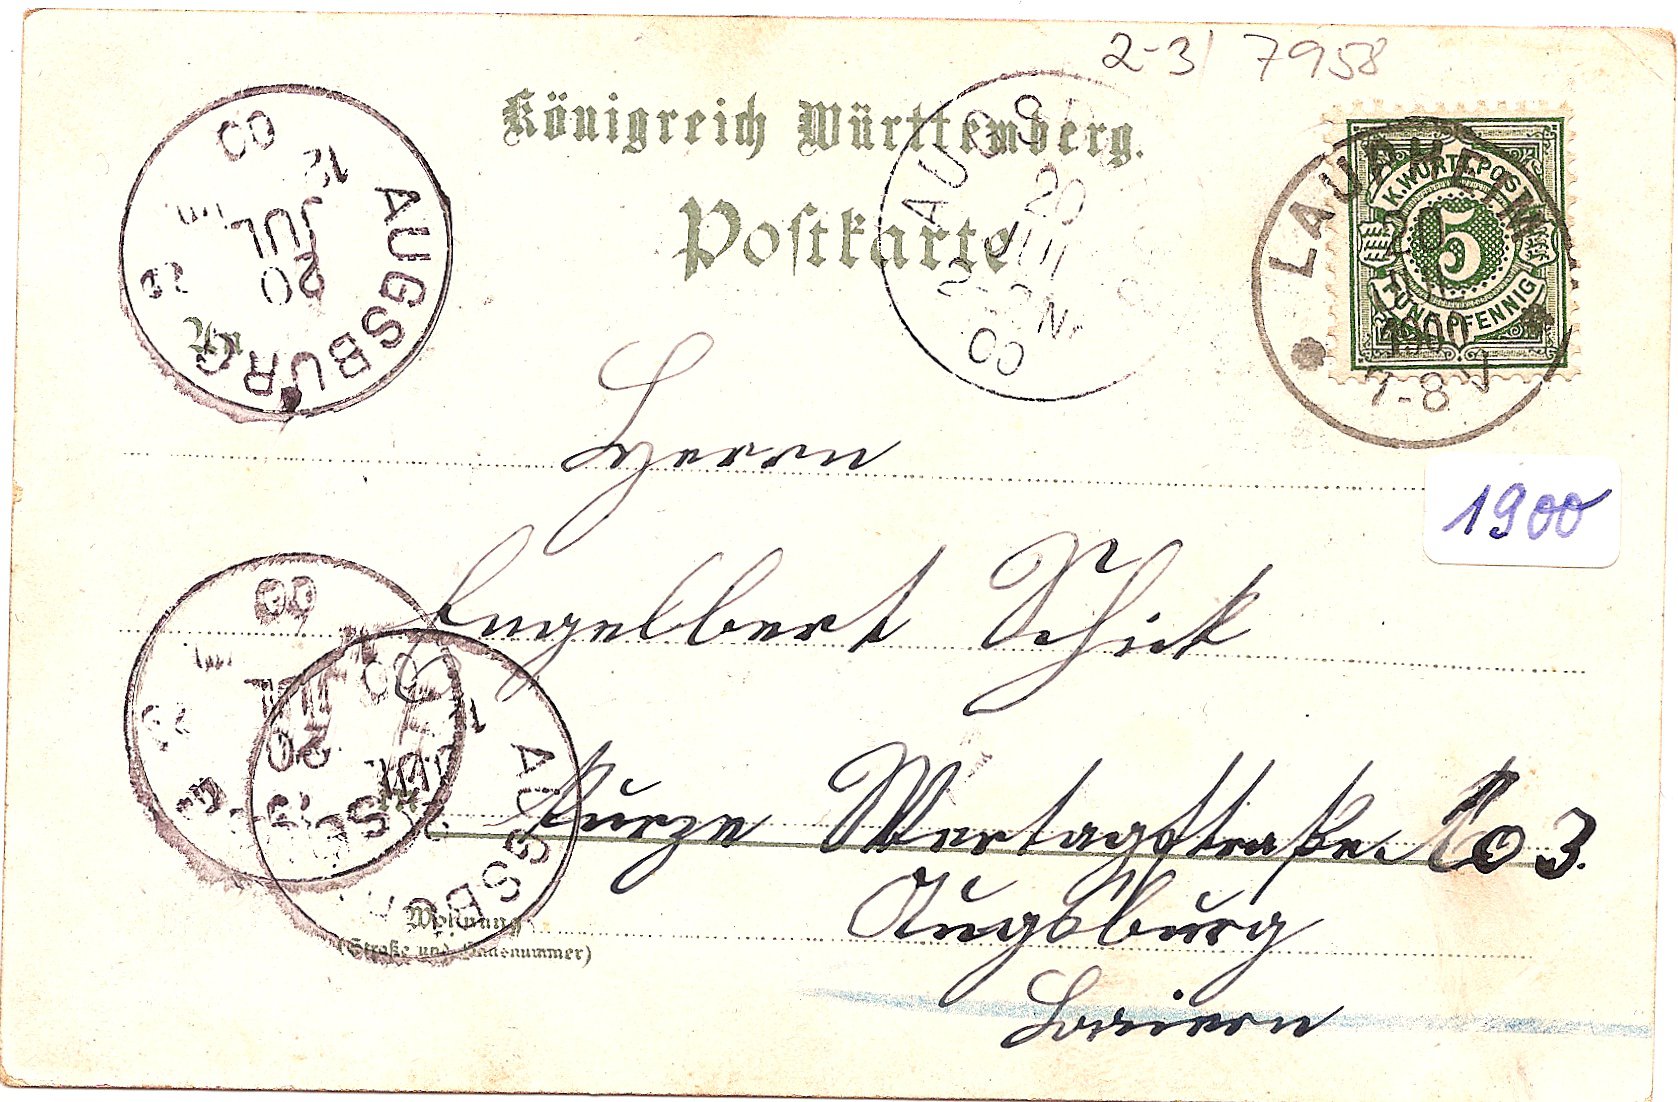 2-3/ 7958
Königreich Württemberg.
Postkarte
K. WÜRTT. POST
5
FÜNF PFENNIG
LAUPHEIM
20
1900
7-8 V
AUGSBURG
20
JUL
12
00
AUGS
20
JUL
2-3 N.
00
An
Herrn
1900
Engelbert Schick
AUGSBURG
20
JUL
00
in
Kurze Wertagstraße 103.
Augsburg
Wohnung
(Straße und Hausnummer)
Bayern